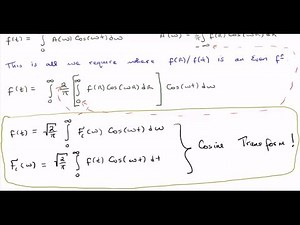 f(t) = ∫₀^∞ A(ω) Cos(ωt) dω A(ω) = 2/π ∫₀^∞ f(t) Cos(ωt) dt
This is all we require where f(R)/f(t) is an Even fⁿ
f(t) = ∫₀^∞ 2/π [ ∫₀^∞ f(R) Cos(ωR) dR ] Cos(ωt) dω
f(t) = √(2/π) ∫₀^∞ F̂c(ω) Cos(ωt) dω
F̂c(ω) = √(2/π) ∫₀^∞ f(t) Cos(ωt) dt } Cosine Transform !